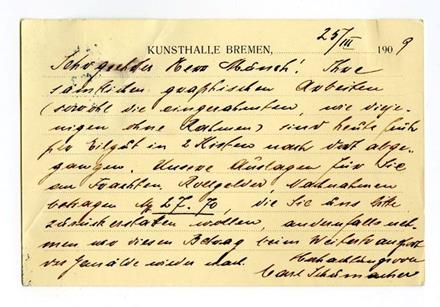 KUNSTHALLE BREMEN, 25/III 1909
Sehr geehrter Herr Munch! Ihre
sämtlichen graphischen Arbeiten
(sowohl die eingerahmten, wie dieje-
nigen ohne Rahmen) sind heute früh
per Eilgut in 2 Kisten nach dort abge-
gangen. Unsere Auslagen für Sie
an Frachten, Rollgelder, Nachnahmen
betragen M 27.70, die Sie uns bitte
zurückerstatten wollen, andernfalls neh-
men wir diesen Betrag beim Weitertransport
der Gemälde wieder nach.
Hochachtungsvoll
Carl Schümacher